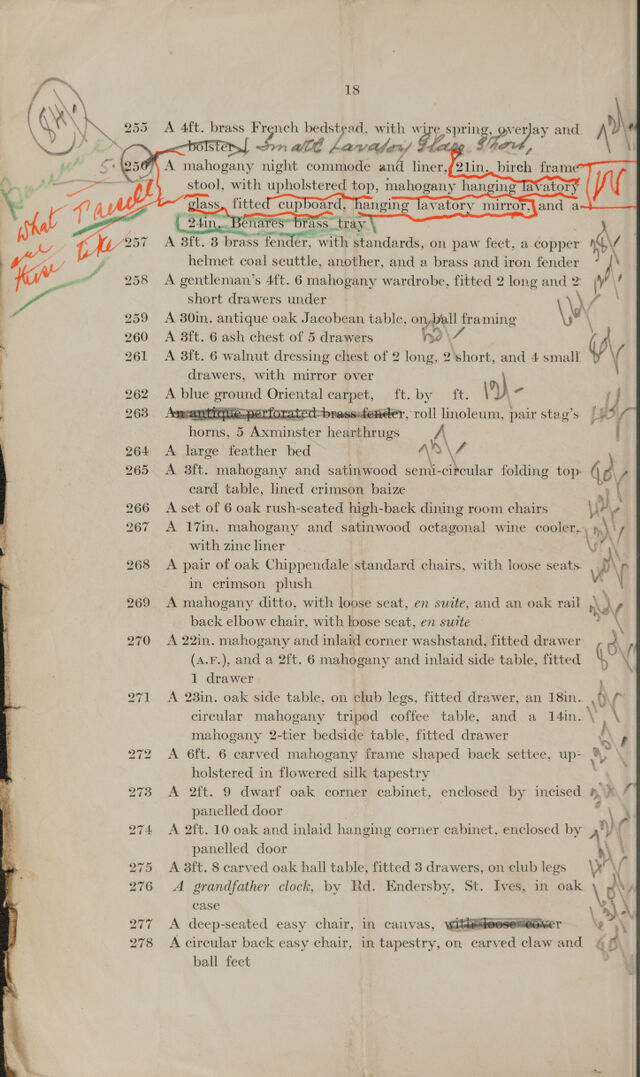 18
255 A 4ft. brass French bedstead, with wire spring, overlay and
bolster Small Lavatory Glass Short,
256 A mahogany night commode and liner, 21in. birch frame
stool, with upholstered top, mahogany hanging lavatory
glass, fitted cupboard, hanging lavatory mirror, and a
24in. Benares brass tray
What
are
these
Take
257 A 3ft. 3 brass fender, with standards, on paw feet, a copper
helmet coal scuttle, another, and a brass and iron fender
258 A gentleman's 4ft. 6 mahogany wardrobe, fitted 2 long and 2
short drawers under
259 A 30in. antique oak Jacobean table, on ball framing
260 A 3ft. 6 ash chest of 5 drawers
261 A 3ft. 6 walnut dressing chest of 2 long, 2 short, and 4 small
drawers, with mirror over
262 A blue ground Oriental carpet, ft. by ft.
263 An antique perforated brass fender, roll linoleum, pair stag's
horns, 5 Axminster hearthrugs
264 A large feather bed
265 A 3ft. mahogany and satinwood semi-circular folding top
card table, lined crimson baize
266 A set of 6 oak rush-seated high-back dining room chairs
267 A 17in. mahogany and satinwood octagonal wine cooler,
with zinc liner
268 A pair of oak Chippendale standard chairs, with loose seats
in crimson plush
269 A mahogany ditto, with loose seat, en suite, and an oak rail
back elbow chair, with loose seat, en suite
270 A 22in. mahogany and inlaid corner washstand, fitted drawer
(A.F.), and a 2ft. 6 mahogany and inlaid side table, fitted
1 drawer
271 A 23in. oak side table, on club legs, fitted drawer, an 18in.
circular mahogany tripod coffee table, and a 14in.
mahogany 2-tier bedside table, fitted drawer
272 A 6ft. 6 carved mahogany frame shaped back settee, up-
holstered in flowered silk tapestry
273 A 2ft. 9 dwarf oak corner cabinet, enclosed by incised
panelled door
274 A 2ft. 10 oak and inlaid hanging corner cabinet, enclosed by
panelled door
275 A 3ft. 8 carved oak hall table, fitted 3 drawers, on club legs
276 A grandfather clock, by Rd. Endersby, St. Ives, in oak
case
277 A deep-seated easy chair, in canvas, with loose cover
278 A circular back easy chair, in tapestry, on carved claw and
ball feet